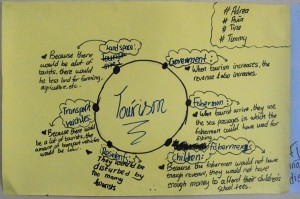 # Adrea
# Avia
# Tina
# Timmy
Land space:
Because there
would be alot of
tourists, there would
be less land for farming,
agriculture, etc.
Government:
When tourism increases, the
revenue also increases.
Tourism
Fisherman:
When tourist arrive, they use
the sea passages in which the
fisherman could have used for
Transport
vehicles:
Because there would
be a lot of tourists, the
amount of transport vehicles
would be low.
They would be
disturbed by
too many
tourists
fishermans
Children:
Because the fisherman would not have
enough revenue, they would not have
enough money to afford their children's
school fees.